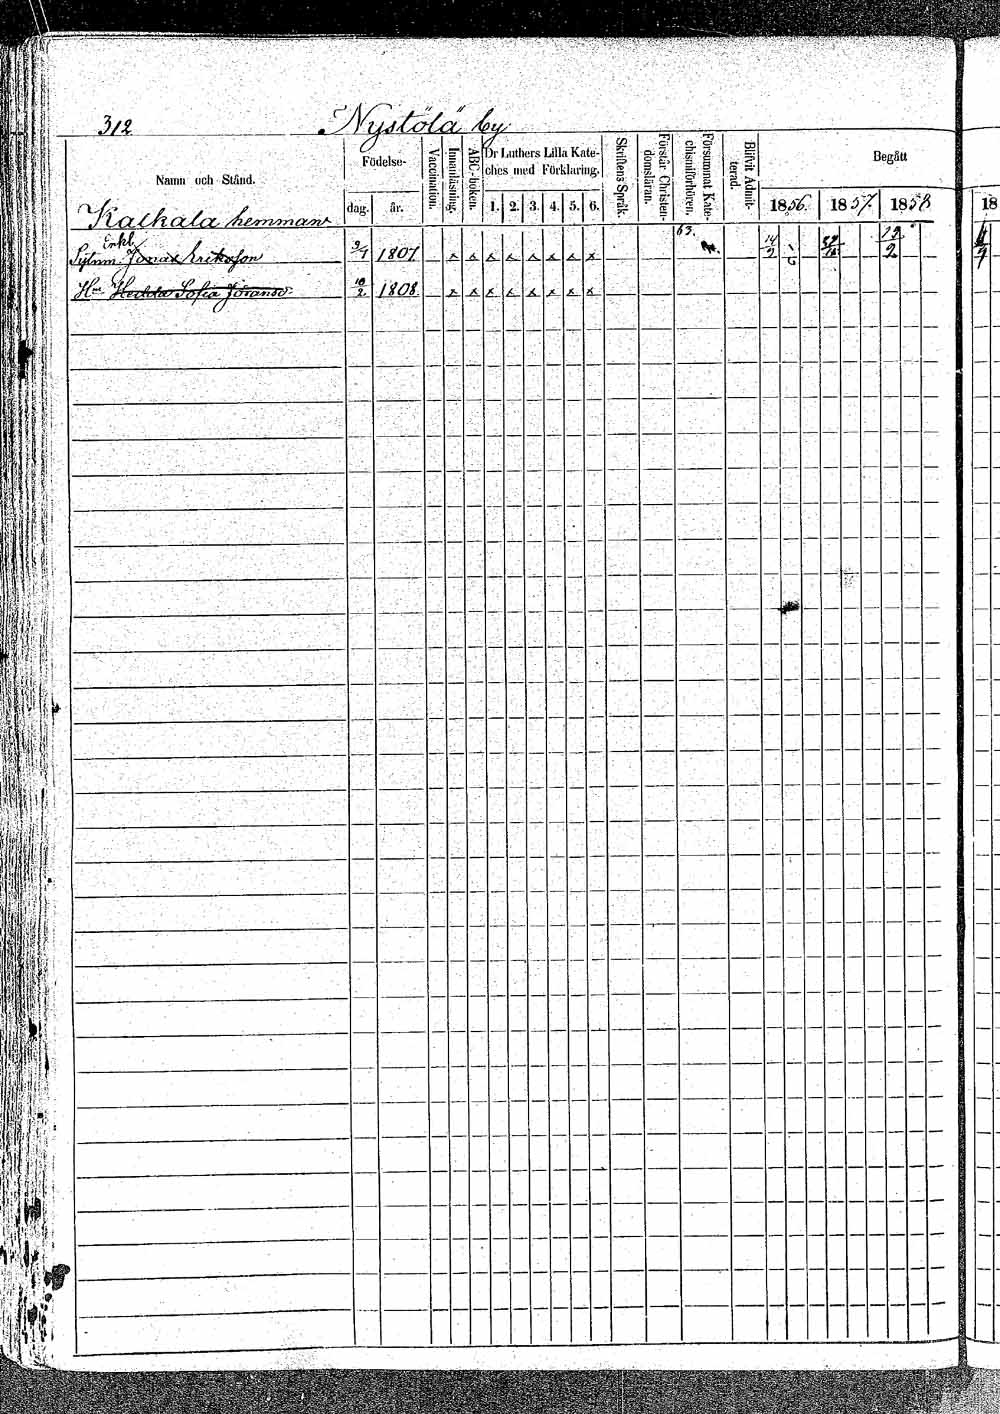 312 Nystölä by
Namn och Stånd. Födelse- Vaccination. Innanläsning. ABC-boken. Dr Luthers Lilla Kate-ches med Förklaring. Skriftens Språk. Förstår Christen-domsläran. Försummat Kate-chismiförhören. Blifvit Admit-terad. Begått
dag. år. 1. 2. 3. 4. 5. 6. 1856. 1857. 1858 18
Kalkala hemman
63.
Enkl.
Sytnm. Jonas Eriksson 9/1 1807 x x x x x x x x 14/9 12/2
Hu Hedda Sofia Jöransd. 10/2 1808 x x x x x x x x